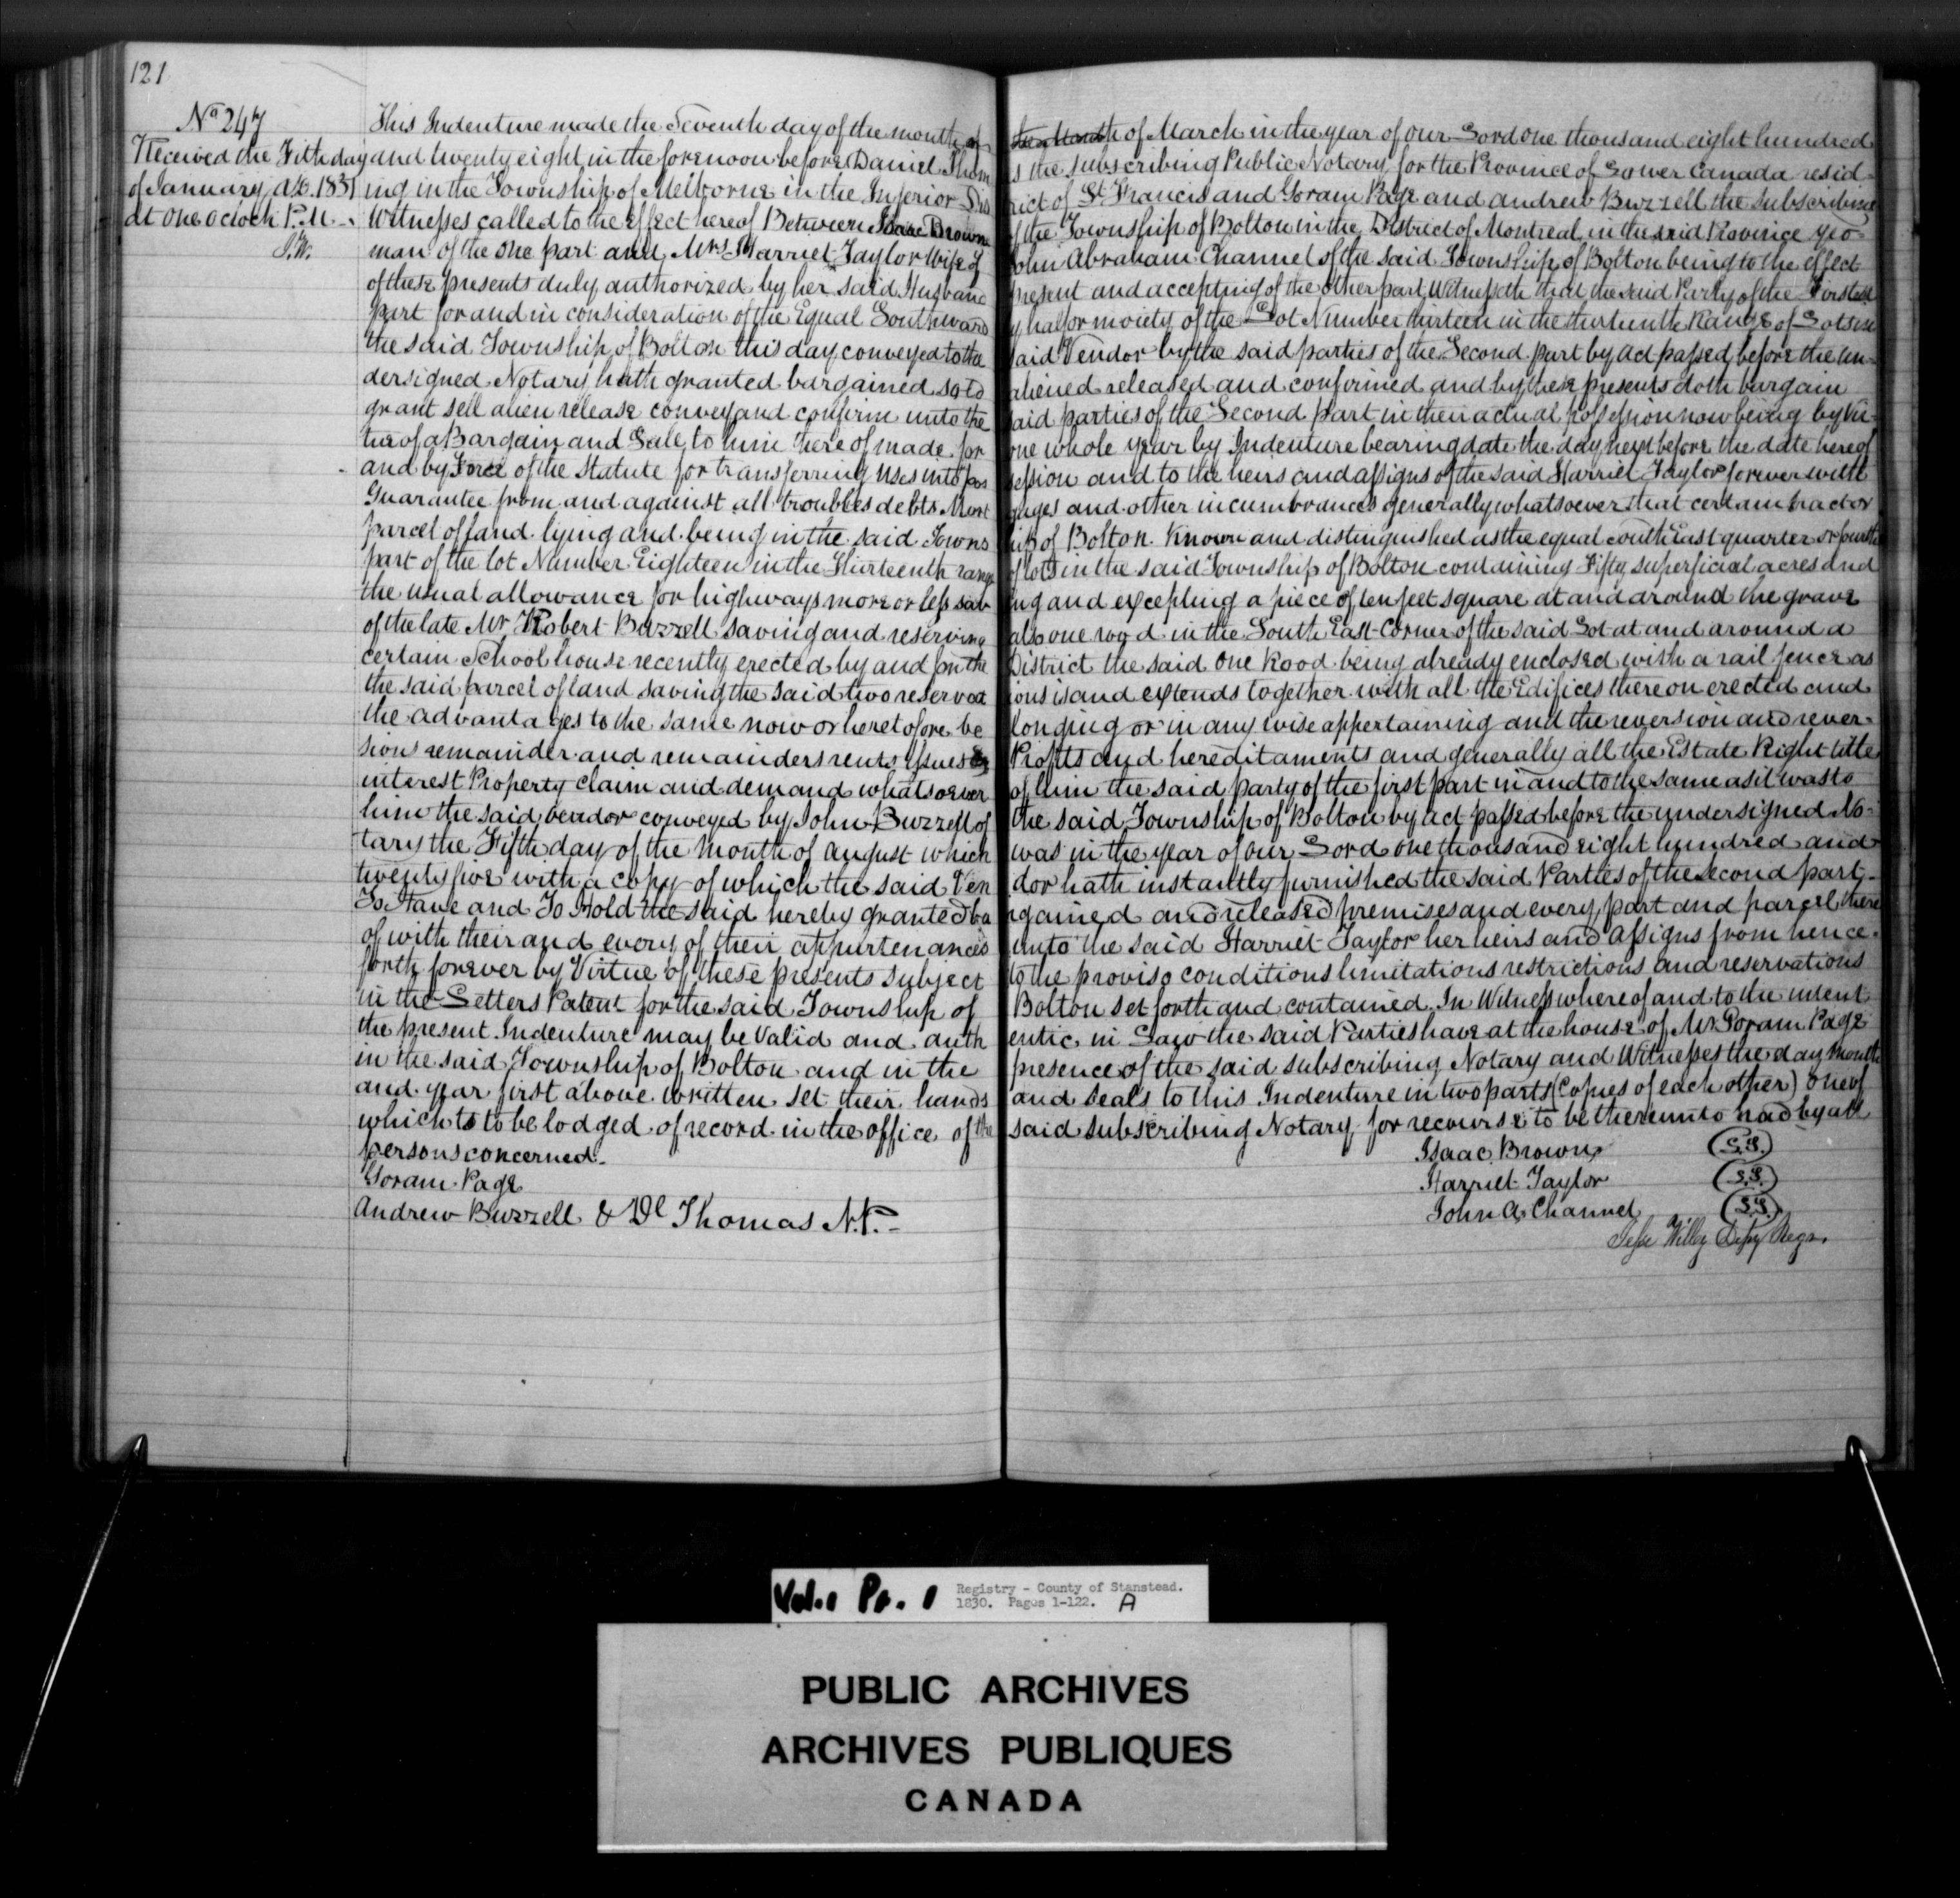 121
No 247
Received the Fifth day
of January, AD. 1831
at One oclock P.M.
J.W.
This Indenture made the Seventh day of the month of March in the year of our Lord one thousand eight hundred
and twenty eight in the forenoon before Daniel Thomas the subscribing Public Notary for the Province of Lower Canada resid-
ing in the Township of Melborne in the Inferior District of St. Francis and Goram Page and andrew Buzzell the subscribing
Witnesses called to the effect hereof Between Isaac Brown of the Township of Bolton in the District of Montreal in the said Province yeo-
man of the one part and Mrs Harriet Taylor Wife of John Abraham Channel of the said Township of Bolton being to the effect
of these presents duly authorized by her said Husband present and accepting of the other part Witnesseth that the said Party of the First
part for and in consideration of the Equal Southwardly half or moiety of the Lot Number thirteen in the thirteenth Range of Lots in
the said Township of Bolton this day conveyed to the said Vendor by the said parties of the Second part by act passed before the un-
dersigned Notary hath granted bargained sold aliened released and confirmed and by these presents doth bargain
grant sell alien release convey and confirm unto the said parties of the Second part in their actual possession now being by Vir-
tue of a Bargain and Sale to him here of made for one whole year by Indenture bearing date the day next before the date hereof
and by Force of the Statute for transferring uses into possession and to the heirs and assigns of the said Harriet Taylor forever with
Guarantee from and against all troubles debts Mortgages and other incumbrances generally whatsoever that certain tract or
parcel of land lying and being in the said Township of Bolton Known and distinguished as the equal South East quarter or fourth
part of the lot Number Eighteen in the Thirteenth range of lots in the said Township of Bolton containing Fifty superficial acres and
the usual allowance for highways more or less saving and excepting a piece of ten feet square at and around the grave
of the late Mr Robert Buzzell saving and reserving also one rood in the South East Corner of the said Lot at and around a
certain School house recently erected by and for the District the said one Rood being already enclosed with a rail fence as
the said parcel of land saving the said two reservations is and extends together with all the Edifices thereon erected and
the advantages to the same now or heretofore belonging or in any wise appertaining and the reversion and rever-
sions remainder and remainders rents Issues & Profits and hereditaments and generally all the Estate Right title
interest Property claim and demand whatsoever of him the said party of the first part in and to the same as it was to
him the said vendor conveyed by John Buzzell of the said Township of Bolton by act passed before the undersigned No-
tary the Fifth day of the Month of August which was in the year of our Lord one thousand eight hundred and
twenty five with a copy of which the said Vendor hath instantly furnished the said Parties of the Second part
To Have and To Hold the said hereby granted bargained and released premises and every part and parcel there
of with their and every of their appurtenances unto the said Harriet Taylor her heirs and Assigns from hence-
forth forever by Virtue of these presents subject to the proviso conditions limitations restrictions and reservations
in the Letters Patent for the said Township of Bolton set forth and contained. In Witness whereof and to the intent
the present Indenture may be Valid and authentic in Law the said Parties have at the house of Mr. Goram Page
in the said Township of Bolton and in the presence of the said subscribing Notary and Witnesses the day month
and year first above written set their hands and seals to this Indenture in two parts (Copies of each other) one of
which is to be lodged of record in the office of the said subscribing Notary for recourse to be thereunto had by all
persons concerned.
Isaac Brown (L.S.)
Goram Page
Harriet Taylor (L.S.)
Andrew Buzzell & Dl Thomas N.P.
John A. Channel (L.S.)
Jesse Willey Depy Regr.
Vol.1 Pt. 1 Registry - County of Stanstead.
1830. Pages 1-122. A
PUBLIC ARCHIVES
ARCHIVES PUBLIQUES
CANADA